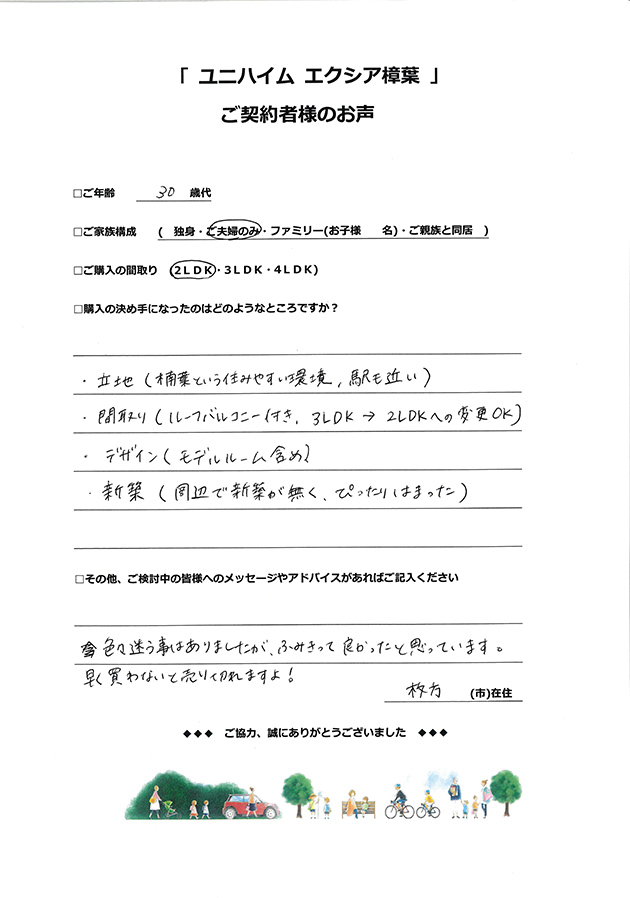 「 ユニハイム エクシア樟葉 」
ご契約者様のお声
□ご年齢 30 歳代
□ご家族構成 ( 独身・ご夫婦のみ・ファミリー(お子様 名)・ご親族と同居 )
□ご購入の間取り (2LDK・3LDK・4LDK)
□購入の決め手になったのはどのようなところですか？
・立地 (楠葉という住みやすい環境, 駅も近い)
・間取り (ルーフバルコニー付き, 3LDK → 2LDKへの変更OK)
・デザイン (モデルルーム含め)
・新築 (周辺で新築が無く、ぴったりはまった)
□その他、ご検討中の皆様へのメッセージやアドバイスがあればご記入ください
色々迷う事はありましたが、ふみきって良かったと思っています。
早く買わないと売り切れますよ！
枚方 (市)在住
◆◆◆ ご協力、誠にありがとうございました ◆◆◆